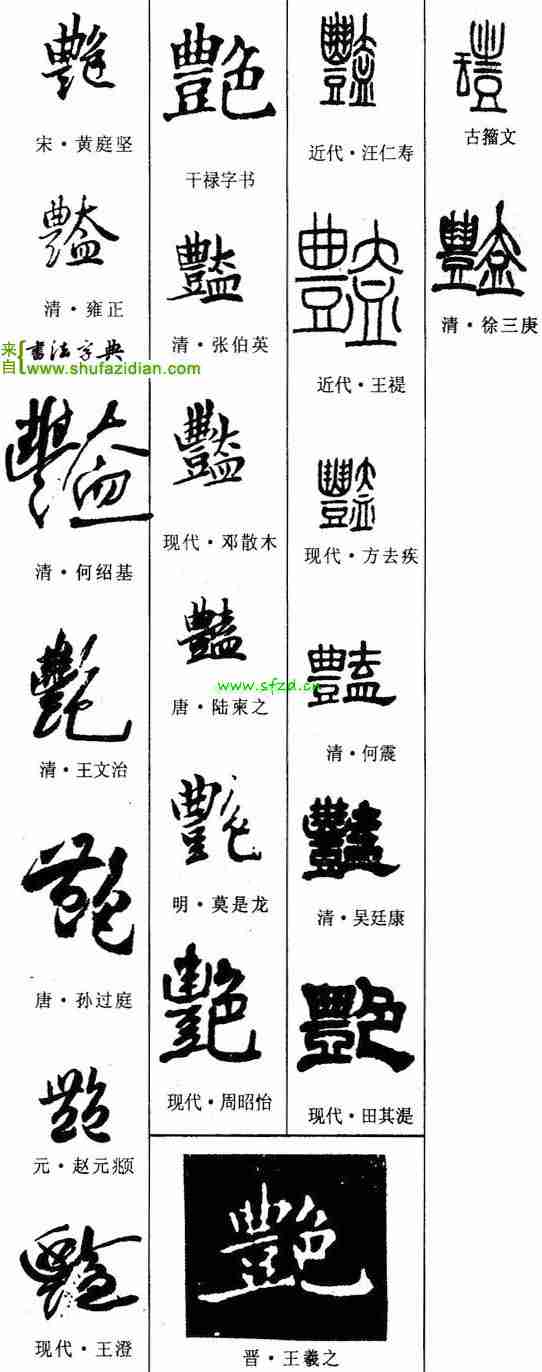 艷
宋·黄庭坚
豔
清·雍正
来自{书法字典
www.shufazidian.com
豔
清·何绍基
艷
清·王文治
艷
唐·孙过庭
艷
元·赵元
豔
现代·王澄
艶
干禄字书
豔
清·张伯英
豔
现代·邓散木
豔
www.sfzd.cn
唐·陆柬之
艶
明·莫是龙
艷
现代·周昭怡
艷
晋·王羲之
豔
近代·汪仁寿
豔
近代·王禔
豔
现代·方去疾
豔
清·何震
豔
清·吴廷康
艶
现代·田其湜
古籀文
豔
清·徐三庚